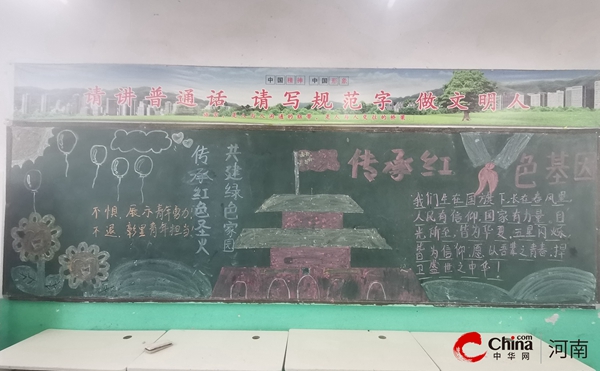 中国
中国
请讲普通话 请写规范字 做文明人
传承红
色基因
共建绿色家园
传承红色圣火
不惧,展示青年
不退,彰显青年担当
我们生在国旗下,长在春风里
人民有信仰,国家有力量,目
光所至,皆为华夏,
皆为信仰,愿以吾辈之青春,捍
卫盛世之中华!
China.com
中华网
河南